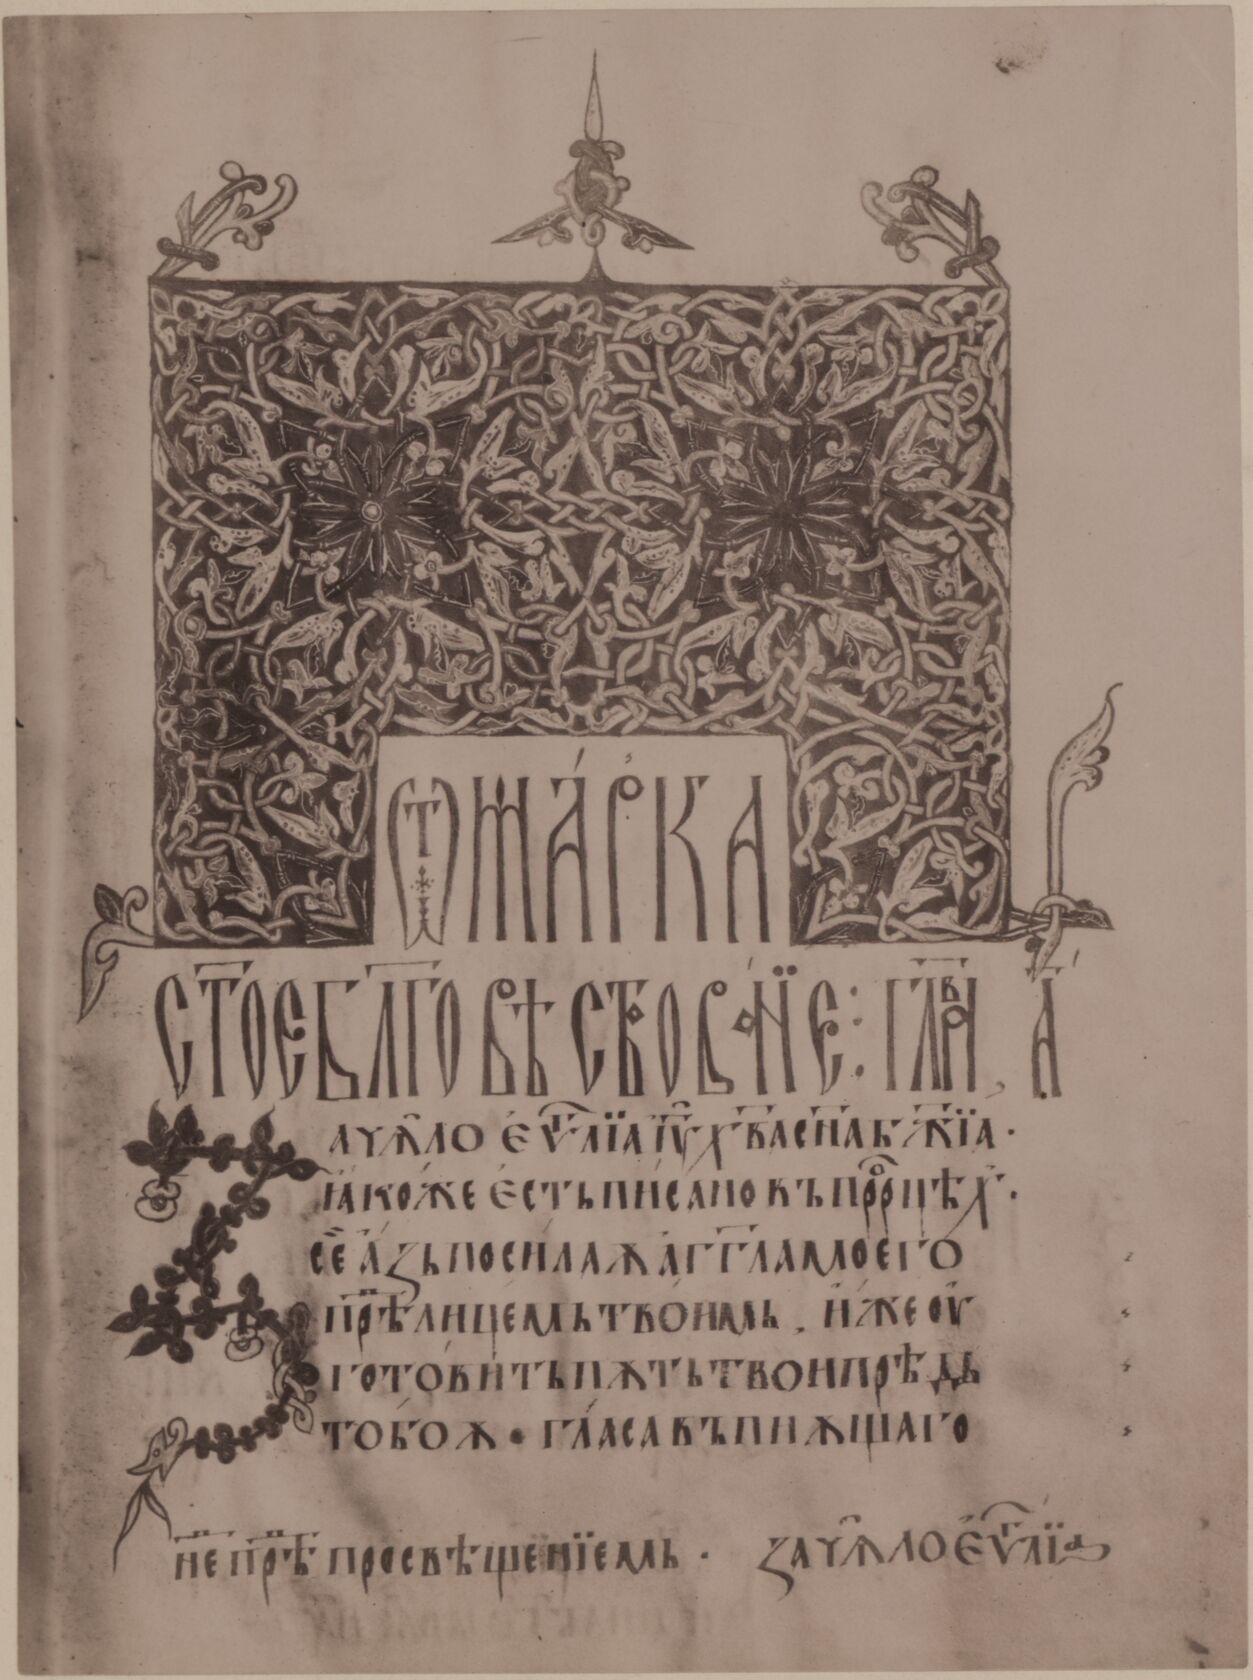 Ѿ МАРКА
СТОЕ БЛГОВѢСТВОВАНЇЕ : ГЛВА , А҃
ЗАЧѦЛО ЕѴⷢ҇ЛЇА ІѴ҃ ХВ҃А СН҃А БЖ҃ЇА ·
ꙖКОЖЕ ЕСТЬ ПИСАНО ВЪ ПРРⷪ҇ЦѢХ ·
СЕ АЗЬ ПОСИЛАѪ АГГ҃ЛА МОЕГО
ПРѢⷣ ЛИЦЕМЬ ТВОИМЬ , ИЖЕ ОУ
ГОТОВИТЬ ПѪТЬ ТВОИ ПРѢДЬ
ТОБОѪ · ГЛАСА ВЪПИѪЩАГО
НЕⷣ ПРѢⷣ ПРОСВѢЩЕНЇЕМЬ · ЗАЧѦЛО ЕѴⷢ҇ЛЇА